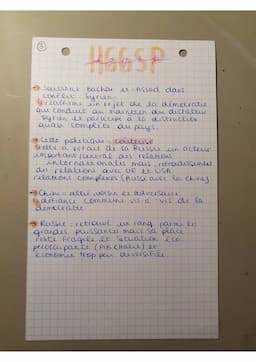 ③
HGGSP
→ Soutient Bachar el-Assad dans
conflit syrien.
réaffirme un rejet de la démocratie
qui conduit au maintien du dictateur
syrien et participe à la destruction
quasi complète du pays.
→ Cette politique coûteuse
a fait de la Russie un acteur
important général des relations
internationales mais refroidissement
des relations avec UE et USA
relations complexes (aussi avec la Chine)
→ Chine : allié voisin et adversaire
défiance commune vis-à-vis de la
démocratie
→ Russie : retrouve un rang parmi les
grandes puissance mais sa place
reste fragiles et situation éco
préoccupante (PIB
économie trop peu diversifiée